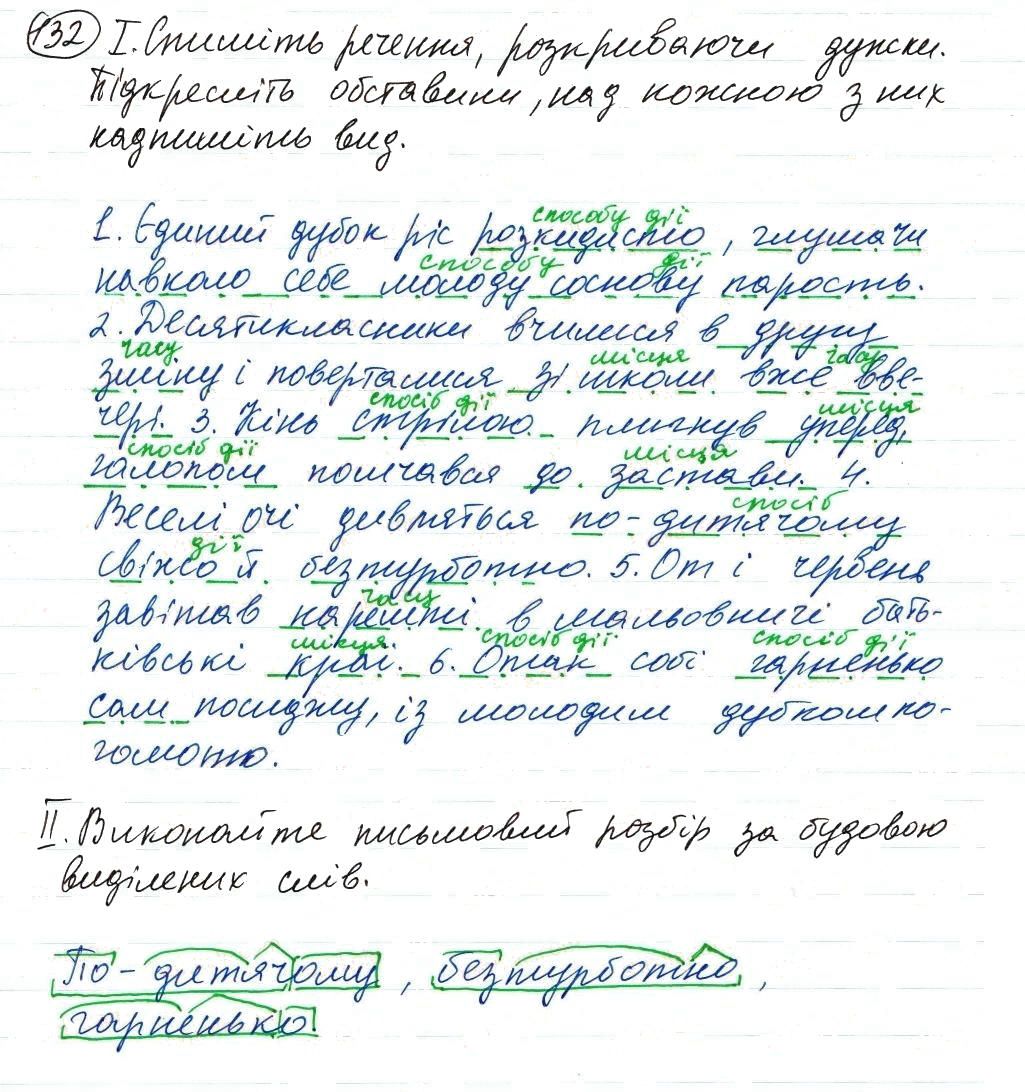 132 I. Спишіть речення, розкриваючи дужки.
Підкресліть обставини, над кожною з них
надпишіть вид.
способу дії
1. Єдиний дубок ріс розкидисто, глушачи
способу дії
навколо себе молоду соснову парость.
2. Десятикласники вчилися в другу
часу місця часу
зміну і поверталися зі школи вже вве-
спосіб дії місця
чері. 3. Кінь стрілою плигнув уперед,
спосіб дії місця
галопом помчався до застави. 4.
спосіб
Веселі очі дивляться по-дитячому
дії
свіжо й безтурботно. 5. От і червень
часу
завітав нарешті в мальовничі бать-
місця спосіб дії спосіб дії
ківські краї. 6. Отак собі гарненько
сам посиджу, із молодим дубком по-
гомоню.
II. Виконайте письмовий розбір за будовою
виділених слів.
По-дитячому, безтурботно,
гарненько.